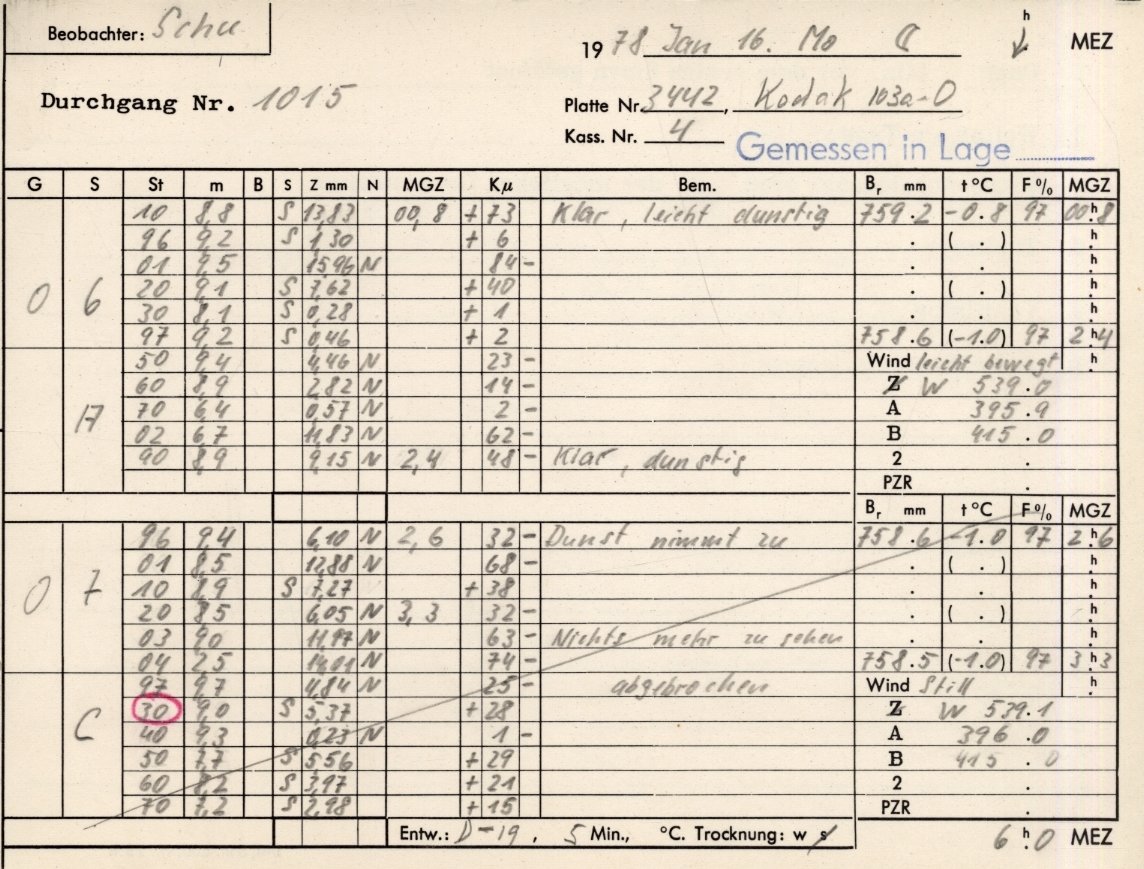 Beobachter: Schu
1978 Jan 16. Mo ☾ h MEZ
Durchgang Nr. 1015
Platte Nr. 3442, Kodak 103a-O
Kass. Nr. 4
Gemessen in Lage
G S St m B S Z mm N MGZ Kμ Bem. Br mm t °C F % MGZ
10 8,8 S 13,83 00,8 + 73 Klar, leicht dunstig 759.2 -0.8 97 00h.8
96 9,2 S 1,30 + 6 . ( . ) h
01 9,5 15,96 N 84 - . . h
0 6 20 9,1 S 7,62 + 40 . ( . ) h
30 8,1 S 0,28 + 1 . . h
97 9,2 S 0,46 + 2 758.6 (-1.0) 97 2h.4
50 9,4 4,46 N 23 - Wind leicht bewegt h
60 8,9 2,82 N 14 - Z W 539.0
17 70 6,4 0,57 N 2 - A 395.9
02 6,7 11,83 N 62 - B 415.0
90 8,9 9,15 N 2,4 48 - Klar, dunstig 2 .
PZR .
Br mm t °C F % MGZ
96 9,4 6,10 N 2,6 32 - Dunst nimmt zu 758.6 -1.0 97 2h.6
01 8,5 12,88 N 68 - . ( . ) h
0 7 10 8,9 S 7,27 + 38 . . h
20 8,5 6,05 N 3,3 32 - . ( . ) h
03 9,0 11,97 N 63 - Nichts mehr zu sehen . . h
04 2,5 14,01 N 74 - 758.5 (-1.0) 97 3h.3
97 9,7 4,84 N 25 - abgebrochen Wind Still h
30 9,0 S 5,37 + 28 Z W 539.1
C 40 9,3 0,23 N 1 - A 396.0
50 7,7 S 5,56 + 29 B 415.0
60 8,2 S 3,97 + 21 2 .
70 7,2 S 2,98 + 15 PZR .
Entw.: D-19, 5 Min., °C. Trocknung: w s 6h.0 MEZ